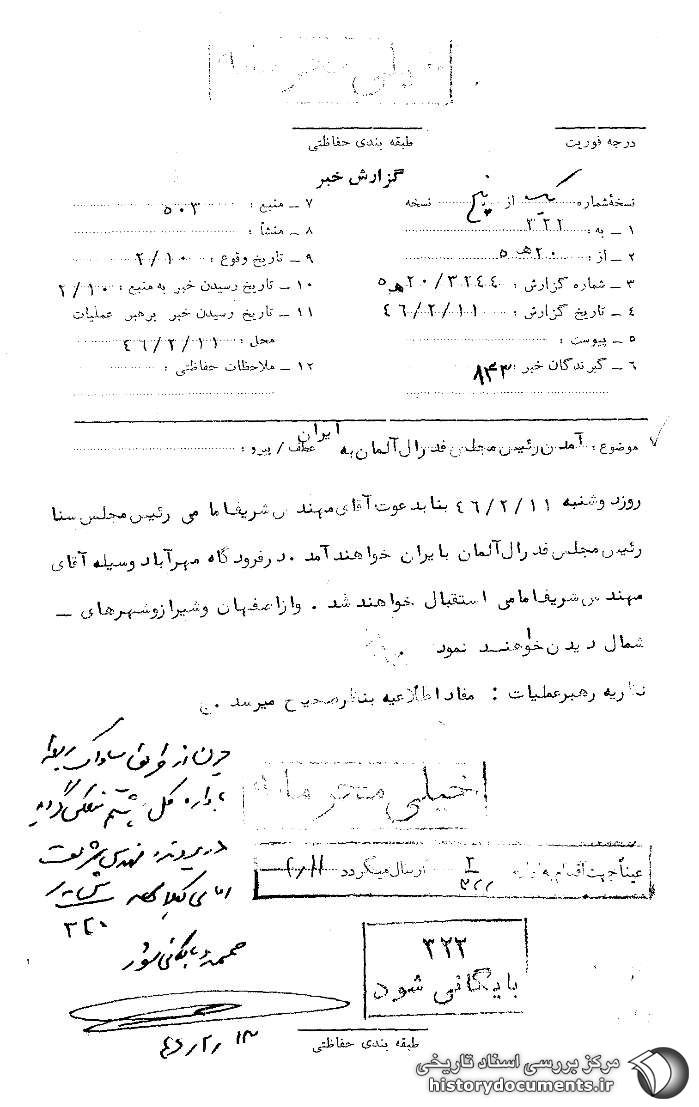 خیلی محرمانه
درجه فوریت
طبقه بندی حفاظتی
گزارش خبر
نسخهٔ شماره یک از پنج نسخه
۱ – به : ۳۲۲
۲ – از : ۲۰ هـ ۵
۳ – شماره گزارش : ۲۰/۳۲۴٤ هـ ۵
٤ – تاریخ گزارش : ٤٦/۲/۱۱
۵ – پیوست :
٦ – گیرندگان خبر : ۸۴۳
۷ – منبع : ۵۰۳
۸ – منشأ :
۹ – تاریخ وقوع : ۲/۱۰
۱۰ – تاریخ رسیدن خبر به منبع : ۲/۱۰
۱۱ – تاریخ رسیدن خبر برهبر عملیات
محل : ٤٦/۲/۱۱
۱۲ – ملاحظات حفاظتی :
موضوع : آمدن رئیس مجلس فدرال آلمان به ایران
عطف / پیرو :
روز دوشنبه ٤٦/۲/۱۱ بنا بدعوت آقای مهندس شریف امامی رئیس مجلس سنا
رئیس مجلس فدرال آلمان بایران خواهند آمد . در فرودگاه مهرآباد وسیله آقای
مهندس شریف امامی استقبال خواهند شد . و از اصفهان و شیراز و شهرهای –
شمال دیدن خواهند نمود
نظریه رهبر عملیات : مفاد اطلاعیه بنظر صحیح میرسد .
چون از طریق ساواک
باداره کل هشتم منعکس گردیده
در پرونده مهندس شریف
امامی
۳۲۰
بایگانی شود
۴۶/۲/۱۳
خیلی محرمانه
عیناً جهت اقدام به ارسال میگردد
۳۲۲
بایگانی شود
طبقه بندی حفاظتی
مرکز بررسی اسناد تاریخی
historydocuments.ir